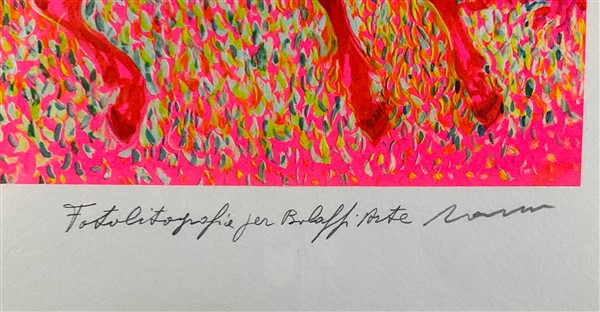 Fotolitografia per Bolaffi Arte